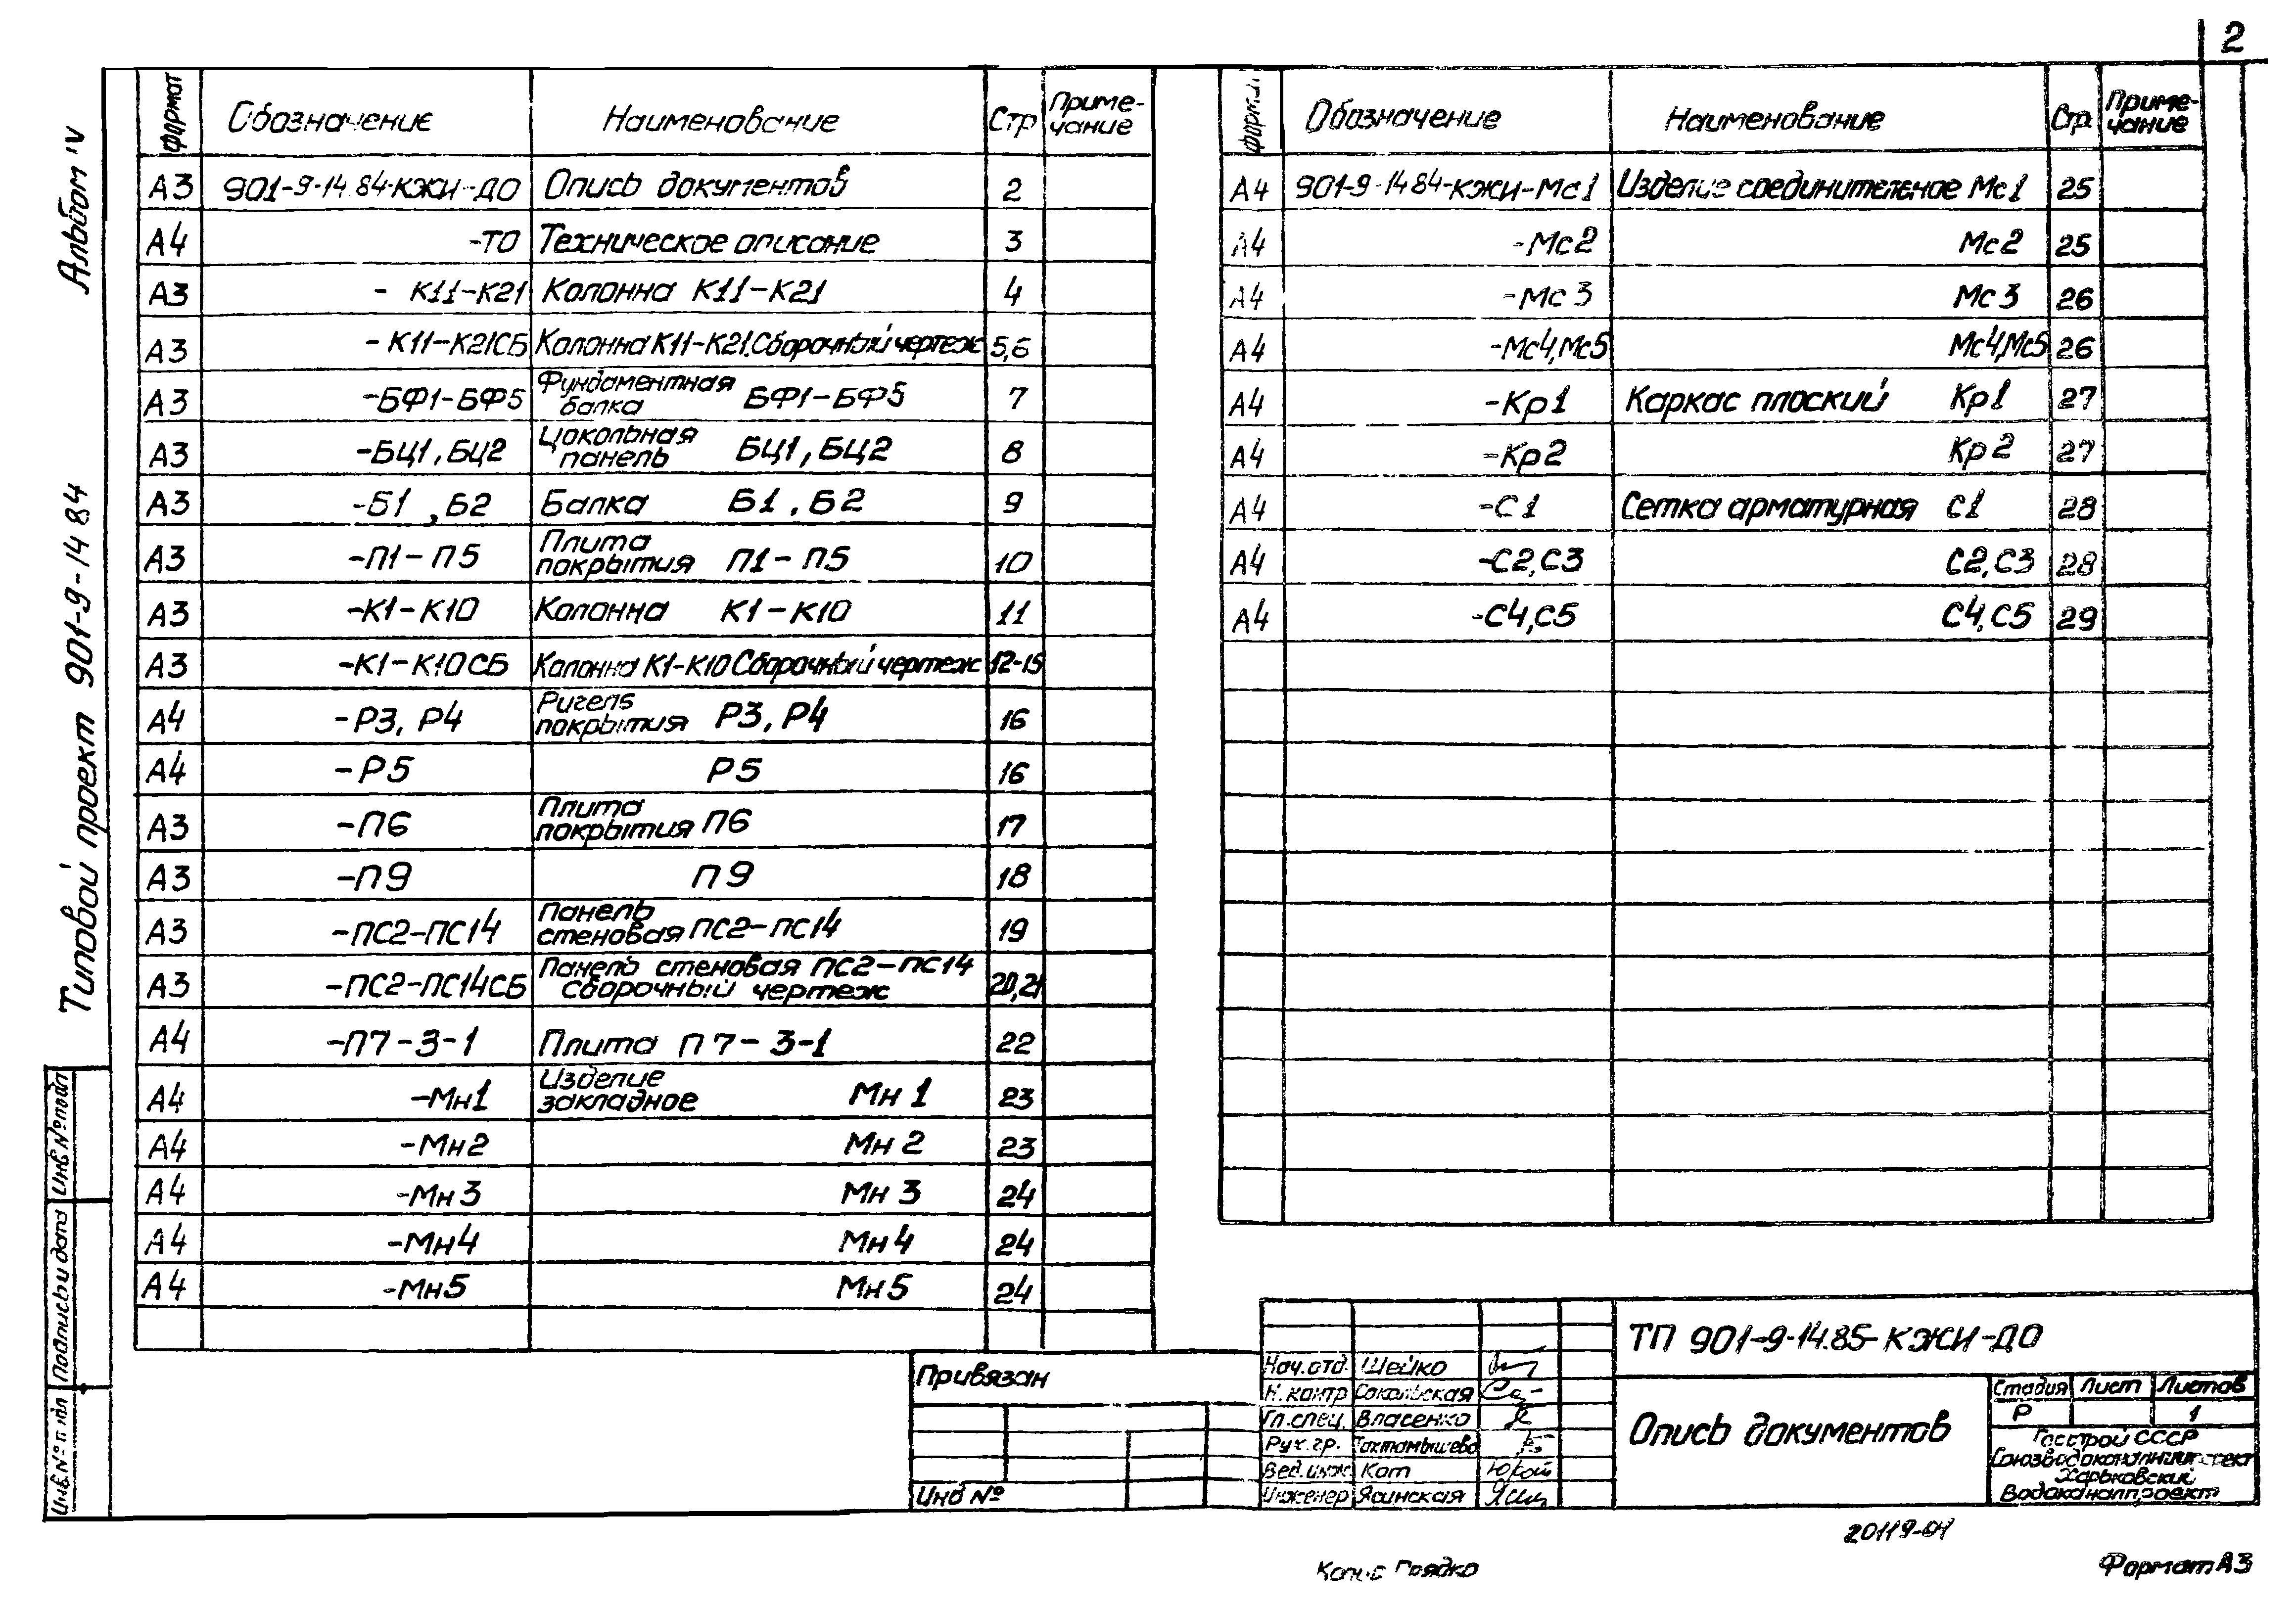 2
Альбом IV
Типовой проект 901-9-14 84
Инв № подл
Подпись и дата
формат Обозначение Наименование Стр Приме-
чание
А3 901-9-14.84-КЖИ-ДО Опись документов 2
А4 -ТО Техническое описание 3
А3 - К11-К21 Колонна К11-К21 4
А3 - К11-К21СБ Колонна К11-К21.Сборочный чертеж 5,6
А3 -БФ1-БФ5 Фундаментная
балка БФ1-БФ5 7
А3 -БЦ1,БЦ2 Цокольная
панель БЦ1,БЦ2 8
А3 -Б1 ,Б2 Балка Б1,Б2 9
А3 -П1-П5 Плита
покрытия П1-П5 10
А3 -К1-К10 Колонна К1-К10 11
А3 -К1-К10СБ Колонна К1-К10 Сборочный чертеж 12-15
А4 -Р3, Р4 Ригель
покрытия Р3, Р4 16
А4 -Р5 Р5 16
А3 -П6 Плита
покрытия П6 17
А3 -П9 П9 18
А3 -ПС2-ПС14 Панель
стеновая ПС2-ПС14 19
А3 -ПС2-ПС14СБ Панель стеновая ПС2-ПС14
сборочный чертеж 20,21
А4 -П7-3-1 Плита П7-3-1 22
А4 -Мн1 Изделие
закладное Мн 1 23
А4 -Мн2 Мн 2 23
А4 -Мн3 Мн 3 24
А4 -Мн4 Мн4 24
А4 -Мн5 Мн5 24
Обозначение Наименование Стр. Приме-
чание
А4 901-9-14 84-КЖИ-Мс1 Изделие соединительное Мс1 25
А4 -Мс2 Мс2 25
А4 -Мс3 Мс3 26
А4 -Мс4,Мс5 Мс4,Мс5 26
А4 -Кр1 Каркас плоский Кр1 27
А4 -Кр2 Кр2 27
А4 -С1 Сетка арматурная С1 28
А4 -С2,С3 С2,С3 28
А4 -С4,С5 С4,С5 29
Привязан
Инв №
Нач.отд. Шейко
Н.контр Сокольская
Гл.спец. Власенко
Рук.гр.
Вед.инж Кот
Инженер Ясинская
ТП 901-9-14.85-КЖИ-ДО
Опись документов
Стадия Лист Листов
Р 1
Госстрой СССР
Союзводоканалниипроект
Харьковский
Водоканалпроект
20119-04
Грядко
Формат А3